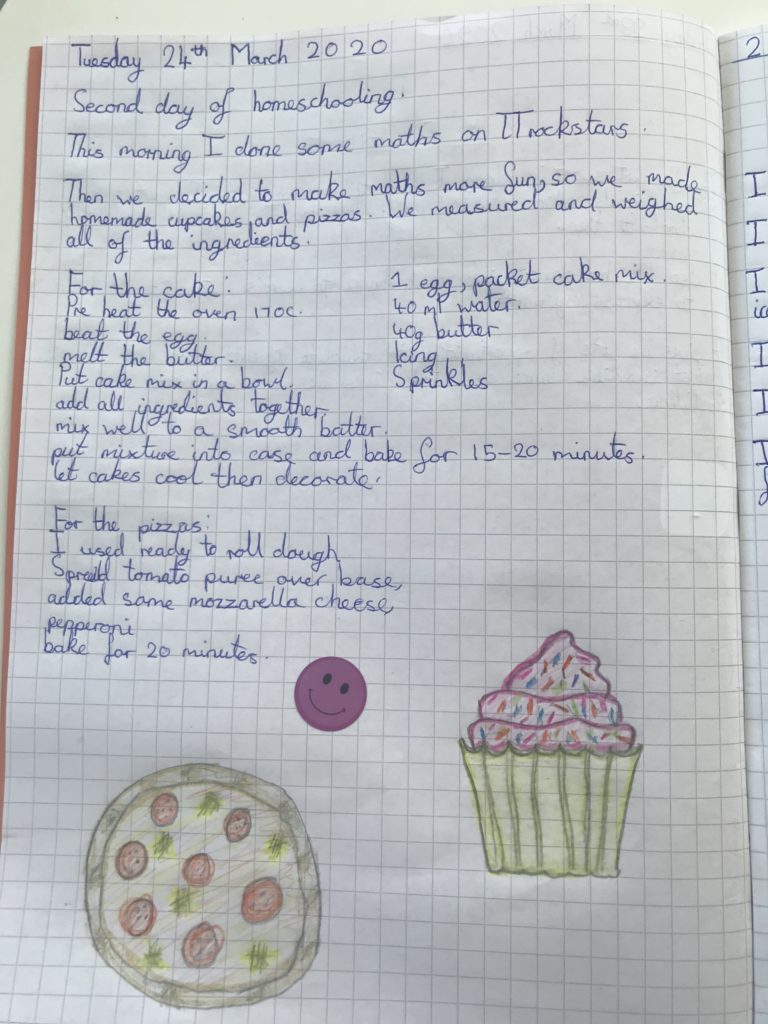 Tuesday 24th March 2020
Second day of homeschooling.
This morning I done some maths on TTrockstars.
Then we decided to make maths more fun, so we made
homemade cupcakes and pizzas. We measured and weighed
all of the ingredients.
For the cake:
Pre heat the oven 170c.
beat the egg.
melt the butter.
Put cake mix in a bowl.
add all ingredients together.
mix well to a smooth batter.
put mixture into case and bake for 15-20 minutes.
let cakes cool then decorate.
1 egg, packet cake mix.
40 ml water.
40g butter
Icing
Sprinkles
For the pizzas:
I used ready to roll dough
Spread tomato puree over base,
added some mozzarella cheese,
pepperoni
bake for 20 minutes.
2
I
I
I
I
I
I